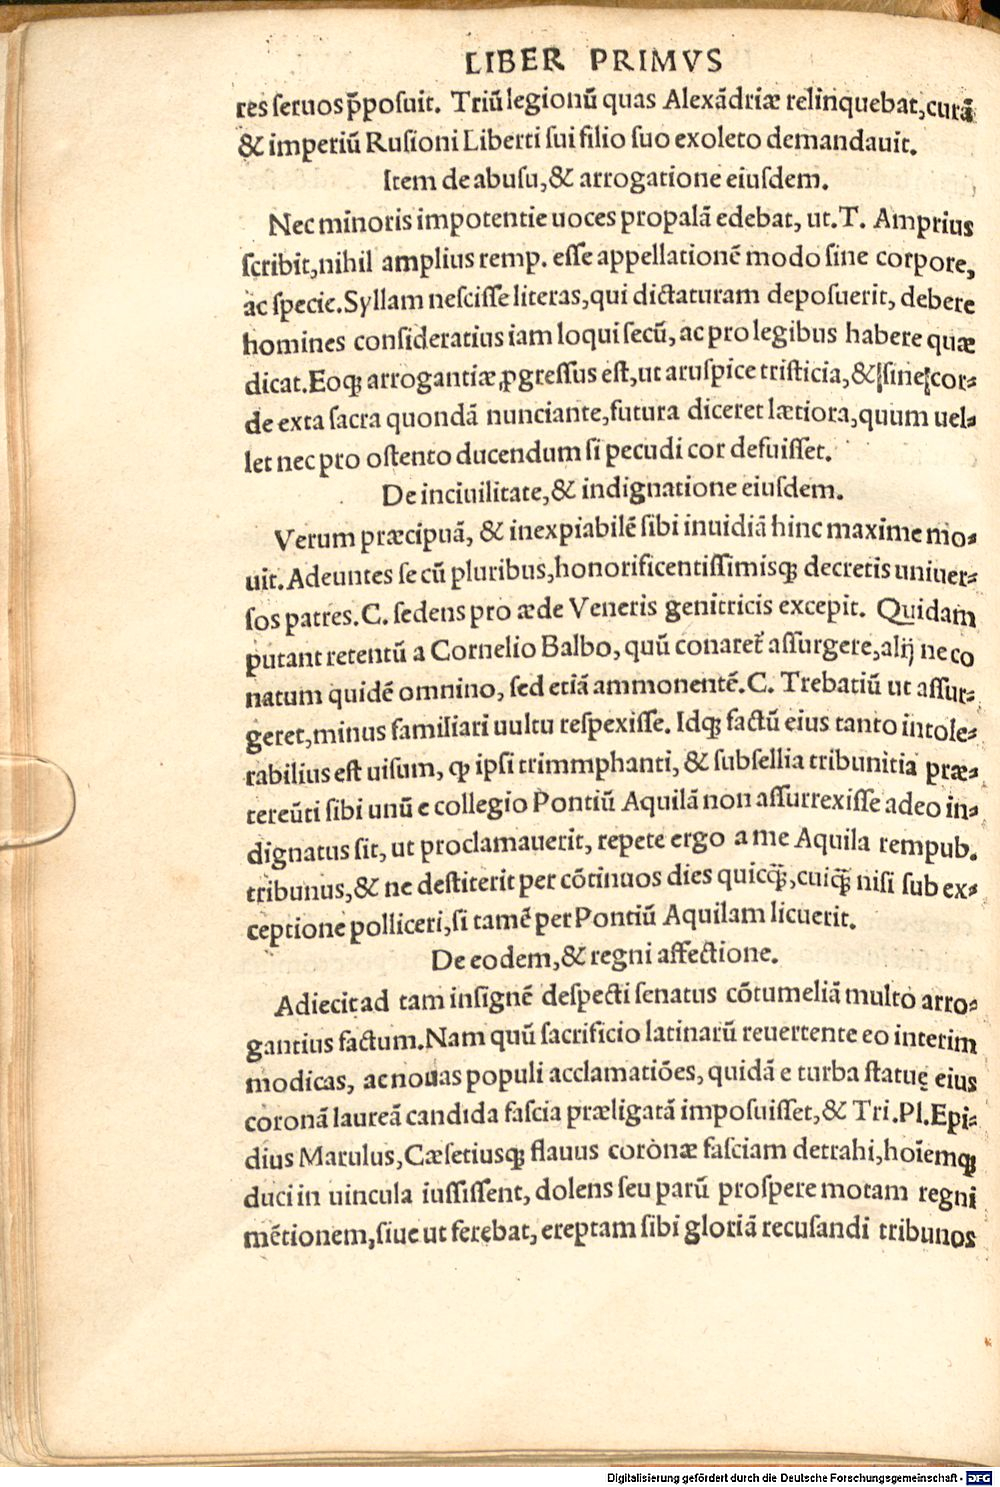 LIBER PRIMVS
res ſeruos p̄poſuit. Triũ legionũ quas Alexãdriæ relinquebat, curã
& imperiũ Ruſioni Liberti ſui filio ſuo exoleto demandauit.
Item de abuſu, & arrogatione eiuſdem.
Nec minoris impotentie uoces propalã edebat, ut. T. Amprius
ſcribit, nihil amplius remp. eſſe appellationẽ modo ſine corpore,
ac ſpecie. Syllam neſciſſe literas, qui dictaturam depoſuerit, debere
homines conſideratius iam loqui ſecũ, ac pro legibus habere quæ
dicat. Eoqꝫ arrogantiæ ꝓgreſſus eſt, ut aruſpice triſticia, & ſine cor⸗
de exta ſacra quondã nunciante, futura diceret lætiora, quum uel⸗
let nec pro oſtento ducendum ſi pecudi cor defuiſſet.
De inciuilitate, & indignatione eiuſdem.
Verum præcipuã, & inexpiabilẽ ſibi inuidiã hinc maxime mo⸗
uit. Adeuntes ſe cũ pluribus, honorificentiſſimisqꝫ decretis uniuer⸗
ſos patres. C. ſedens pro æde Veneris genitricis excepit. Quidam
putant retentũ a Cornelio Balbo, quũ conaret᷑ aſſurgere, alij ne co
natum quidẽ omnino, ſed etiã ammonentẽ. C. Trebatiũ ut aſſur⸗
geret, minus familiari uultu reſpexiſſe. Idqꝫ factũ eius tanto intole⸗
rabilius eſt uiſum, ꝙ ipſi trimmphanti, & ſubſellia tribunitia præ⸗
tereũti ſibi unũ e collegio Pontiũ Aquilã non aſſurrexiſſe adeo in⸗
dignatus ſit, ut proclamauerit, repete ergo a me Aquila rempub.
tribunus, & ne deſtiterit per cõtinuos dies quicq̃ꝫ, cuiq̃ꝫ niſi ſub ex⸗
ceptione polliceri, ſi tamẽ per Pontiũ Aquilam licuerit.
De eodem, & regni affectione.
Adiecit ad tam inſignẽ deſpecti ſenatus cõtumeliã multo arro⸗
gantius factum. Nam quũ ſacrificio latinarũ reuertente eo interim
modicas, ac nouas populi acclamatiões, quidã e turba ſtatuę eius
coronã laureã candida faſcia præligatã impoſuiſſet, & Tri. Pl. Epi⸗
dius Marulus, Cæſetiusqꝫ flauus coronæ faſciam detrahi, hoĩemqꝫ
duci in uincula iuſſiſſent, dolens ſeu parũ proſpere motam regni
mẽtionem, ſiue ut ferebat, ereptam ſibi gloriã recuſandi tribunos
Digitalisierung gefördert durch die Deutsche Forschungsgemeinschaft - DFG